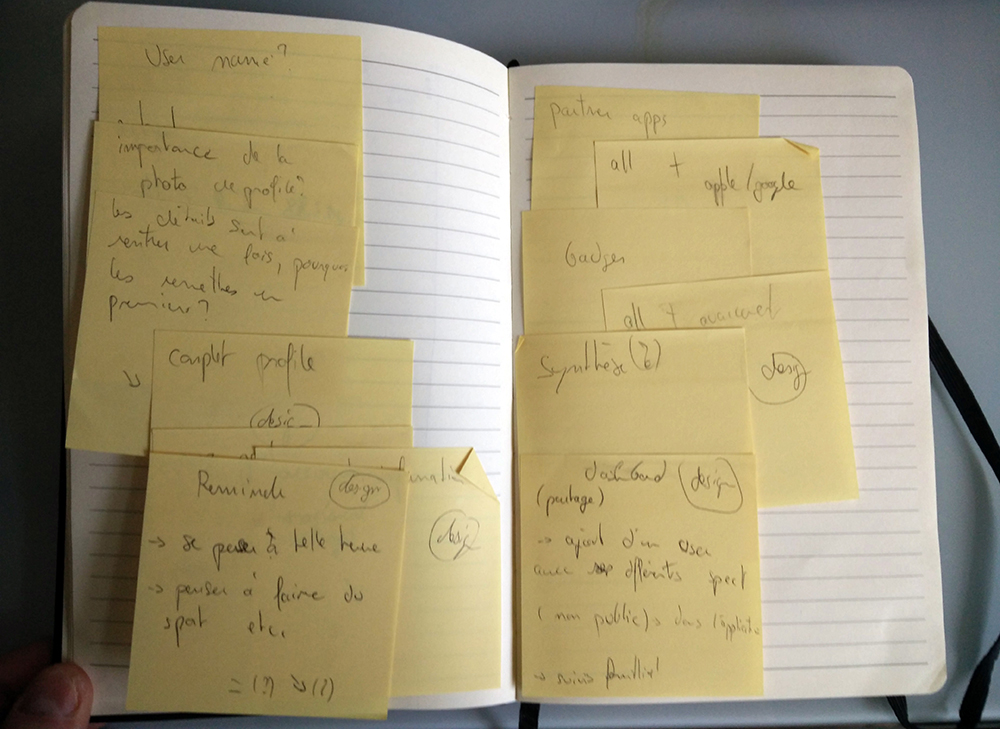 User name?
importance de la
photo de profile?
les détails sont à
rentrer une fois, pourquoi
les remettres en
premier?
↘
Complet profile
design
Reminde
design
→ se peser à telle heure
→ penser à faire du
sport etc.
= (?) ↘ (?)
design
partner apps
all +
apple/google
badges
all +
design
Synthèse (?)
dashboard
design
(partage)
→ ajout d'un user
avec différents
(non public) dans l'applicatio
→ suivis familial